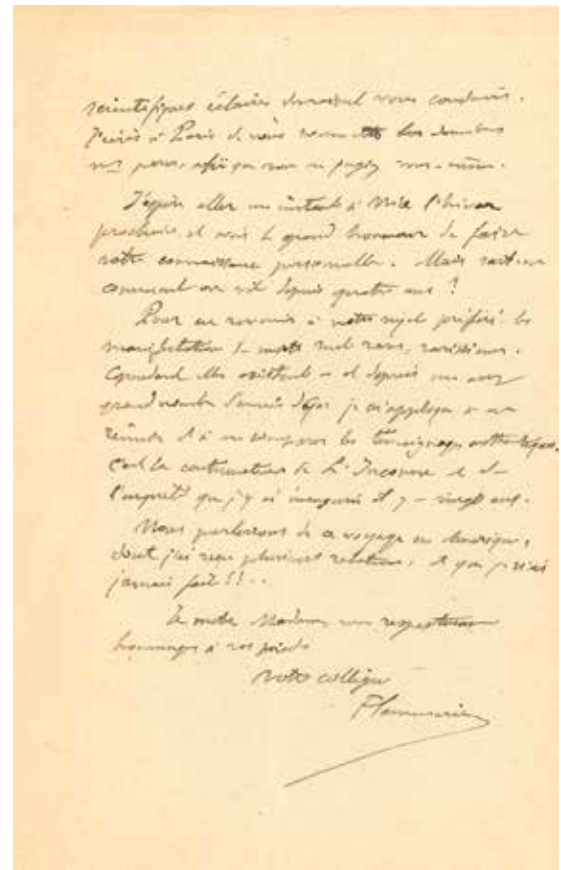 scientifiques éclairés devraient vous conduire.
J'écris à Paris de vous soumettre les données
afin que vous en jugiez vous-même.
J'espère aller un instant à Nice l'hiver
prochain et avoir le grand honneur de faire
votre connaissance personnelle. Mais sait-on
comment on vit depuis quatre ans ?
Pour en revenir à notre sujet préféré les
manifestations de morts sont rares, rarissimes.
Cependant elles existent – et depuis un assez
grand nombre d'années déjà je m'applique à en
réunir et à en comparer les témoignages authentiques.
C'est la continuation de L'Inconnu et de
l'enquête que j'y ai inaugurée il y a vingt ans.
Nous parlerons de ce voyage en Amérique,
dont j'ai reçu plusieurs relations, et que je n'ai
jamais fait !! ..
Je mets Madame, mes respectueux
hommages à vos pieds
Votre collègue
Flammarion